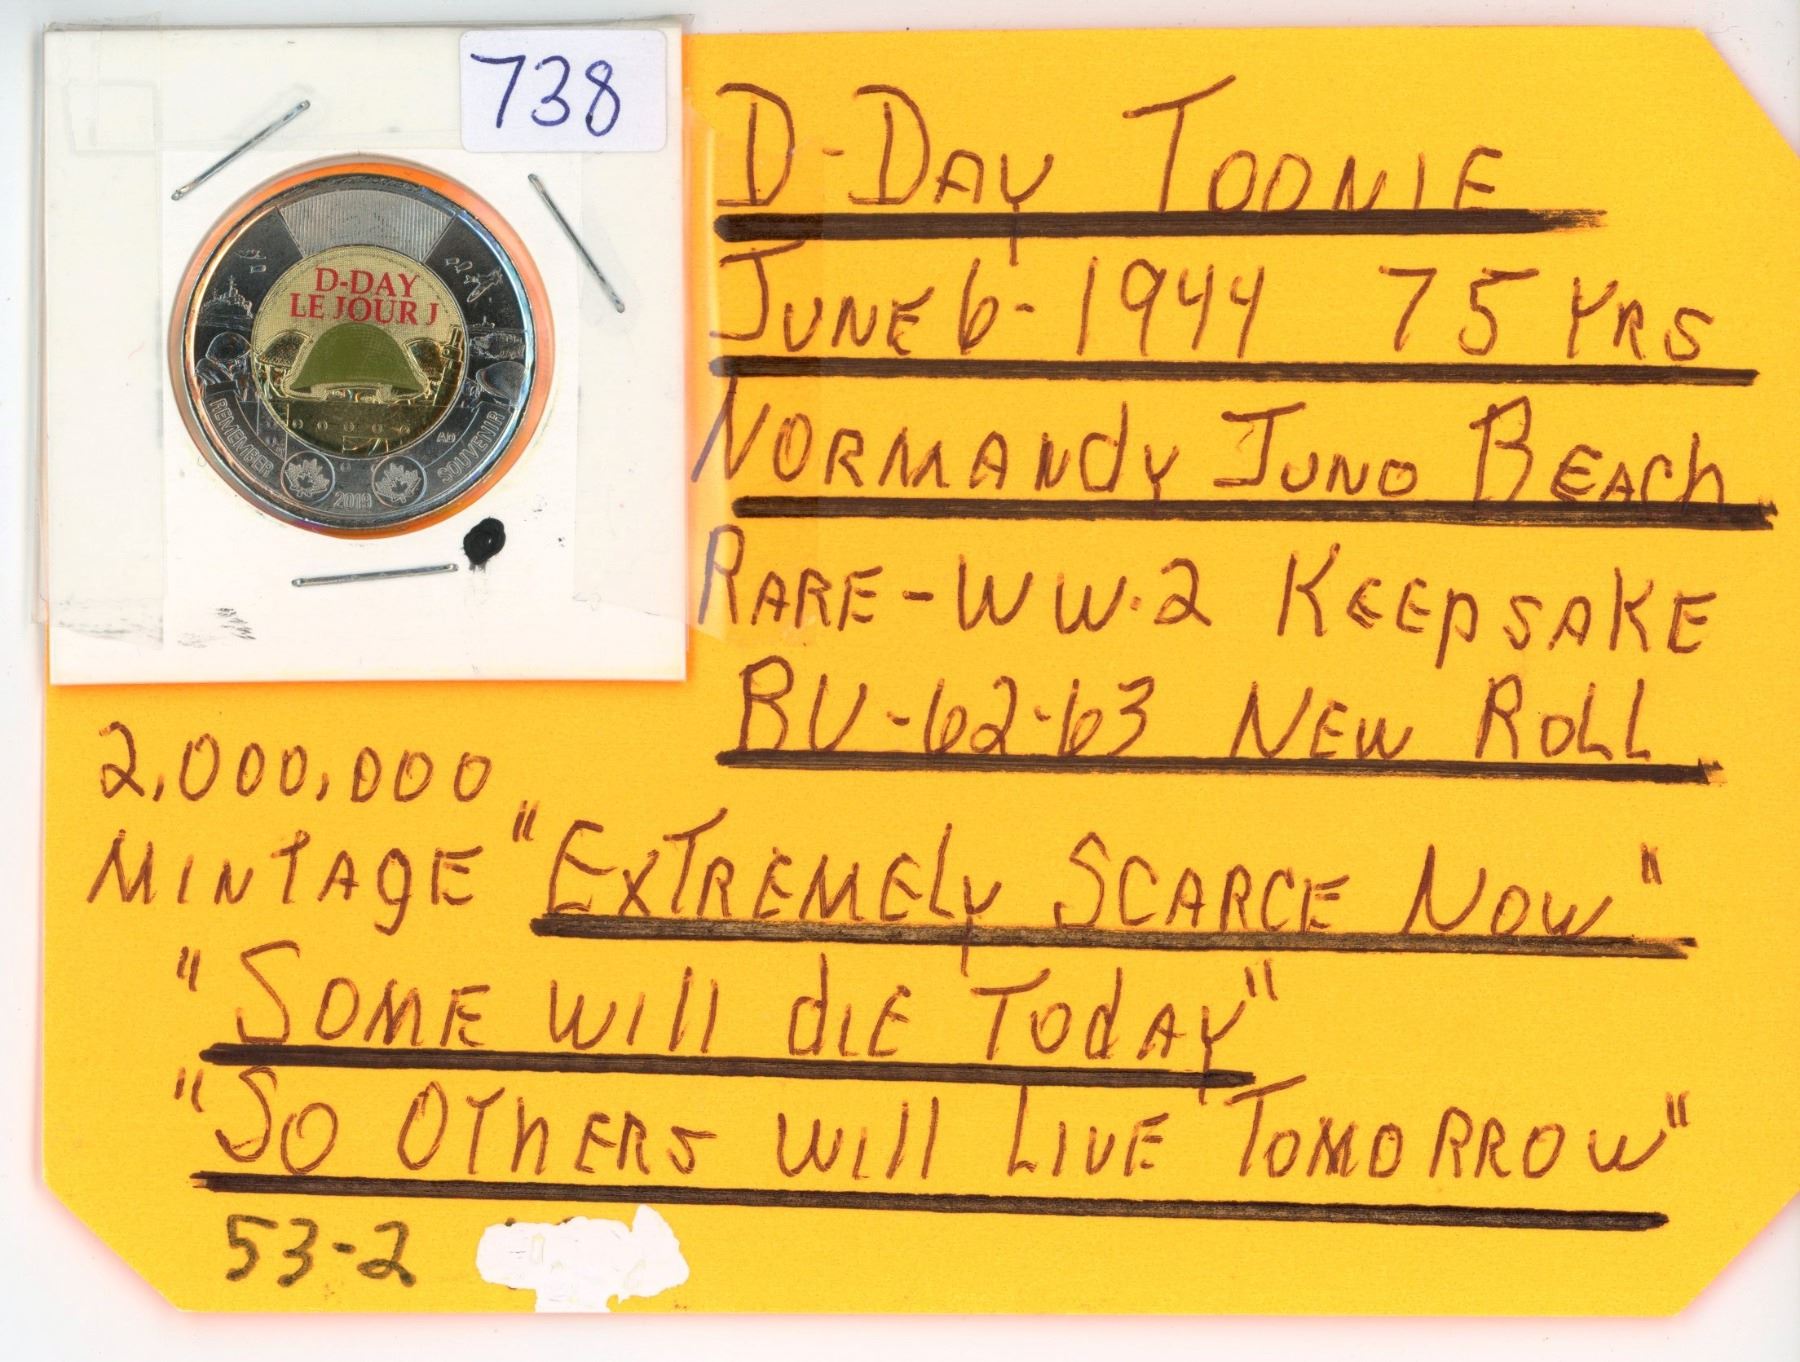 738
D-DAY
LE JOUR J
REMEMBER
2019
AD
SOUVENIR
D-DAY TOONIE
JUNE 6-1944 75 YRS
NORMANdy JUNO BEACh
RARE-WW.2 KEEpSAKE
BU-62-63 NEW ROLL
2,000,000
MINTAgE "EXTREMELy SCARCE NOW"
"SOME WIll dIE TOdAY"
"SO OThERS WIll LIVE TOMORROW"
53-2